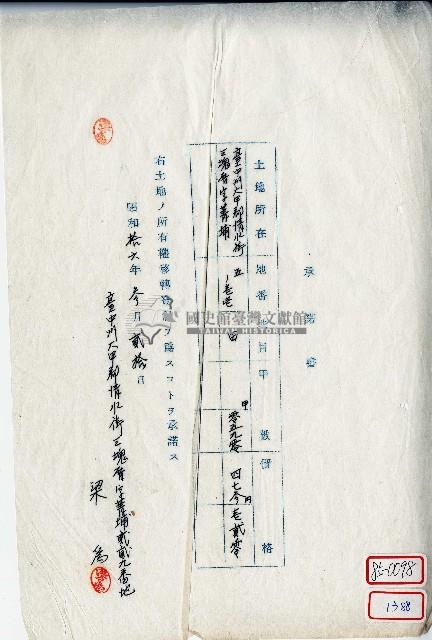 承諾書
土地所在 地番 地目 甲數 價格
臺中州大甲郡清水街
三塊厝字菁埔
五
ノ壱壱
田
甲
零五九零
円
四七参壱貳零
右土地ノ所有權移轉登記ヲ爲スコトヲ承諾ス
昭和拾六年参月貳拾日
臺中州大甲郡清水街三塊厝字菁埔貳貳九番地
梁 為
國史館臺灣文獻館
TAIWAN HISTORICA
86-0098
1388